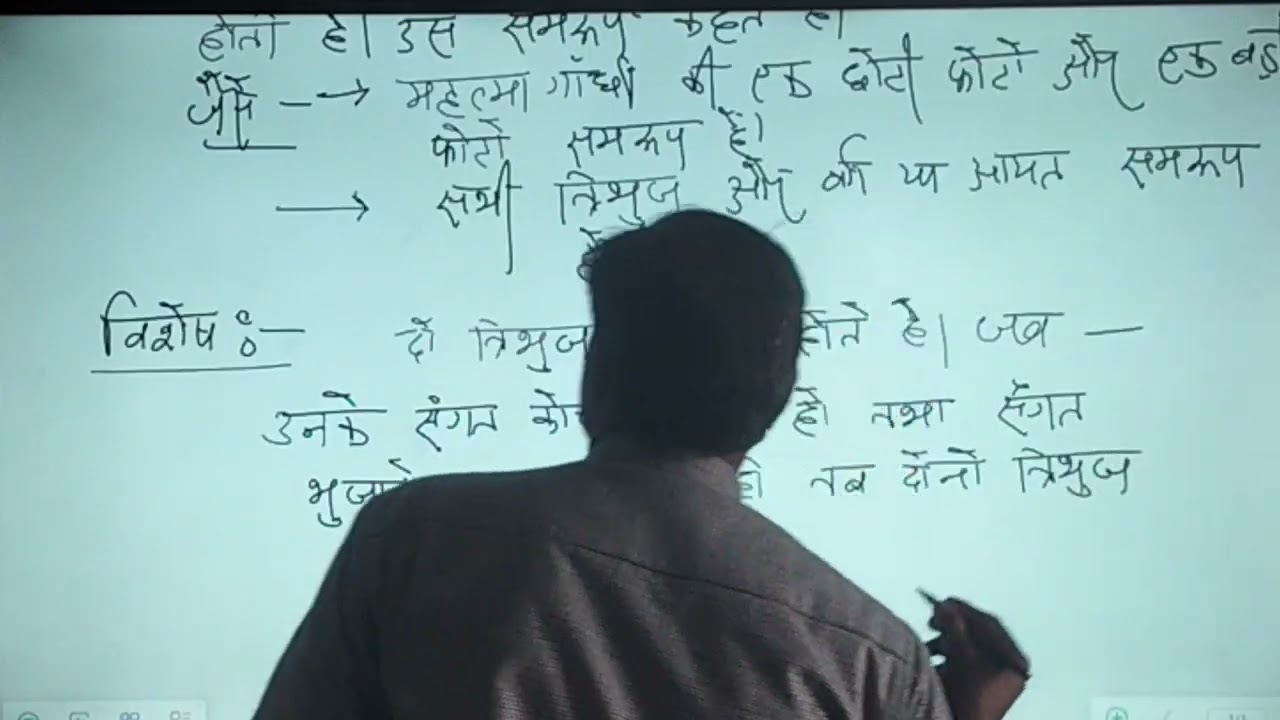 होती है। उसे समरूप कहते है।
जैसे -→ महात्मा गाँधी की एक छोटी फोटो और एक बड़े
फोटो समरूप है।
→ सभी त्रिभुज और वर्ग या आयत समरूप
विशेष :- दो त्रिभुज होते है। जब —
उनके संगत हो तथा संगत
हो तब दोनों त्रिभुज